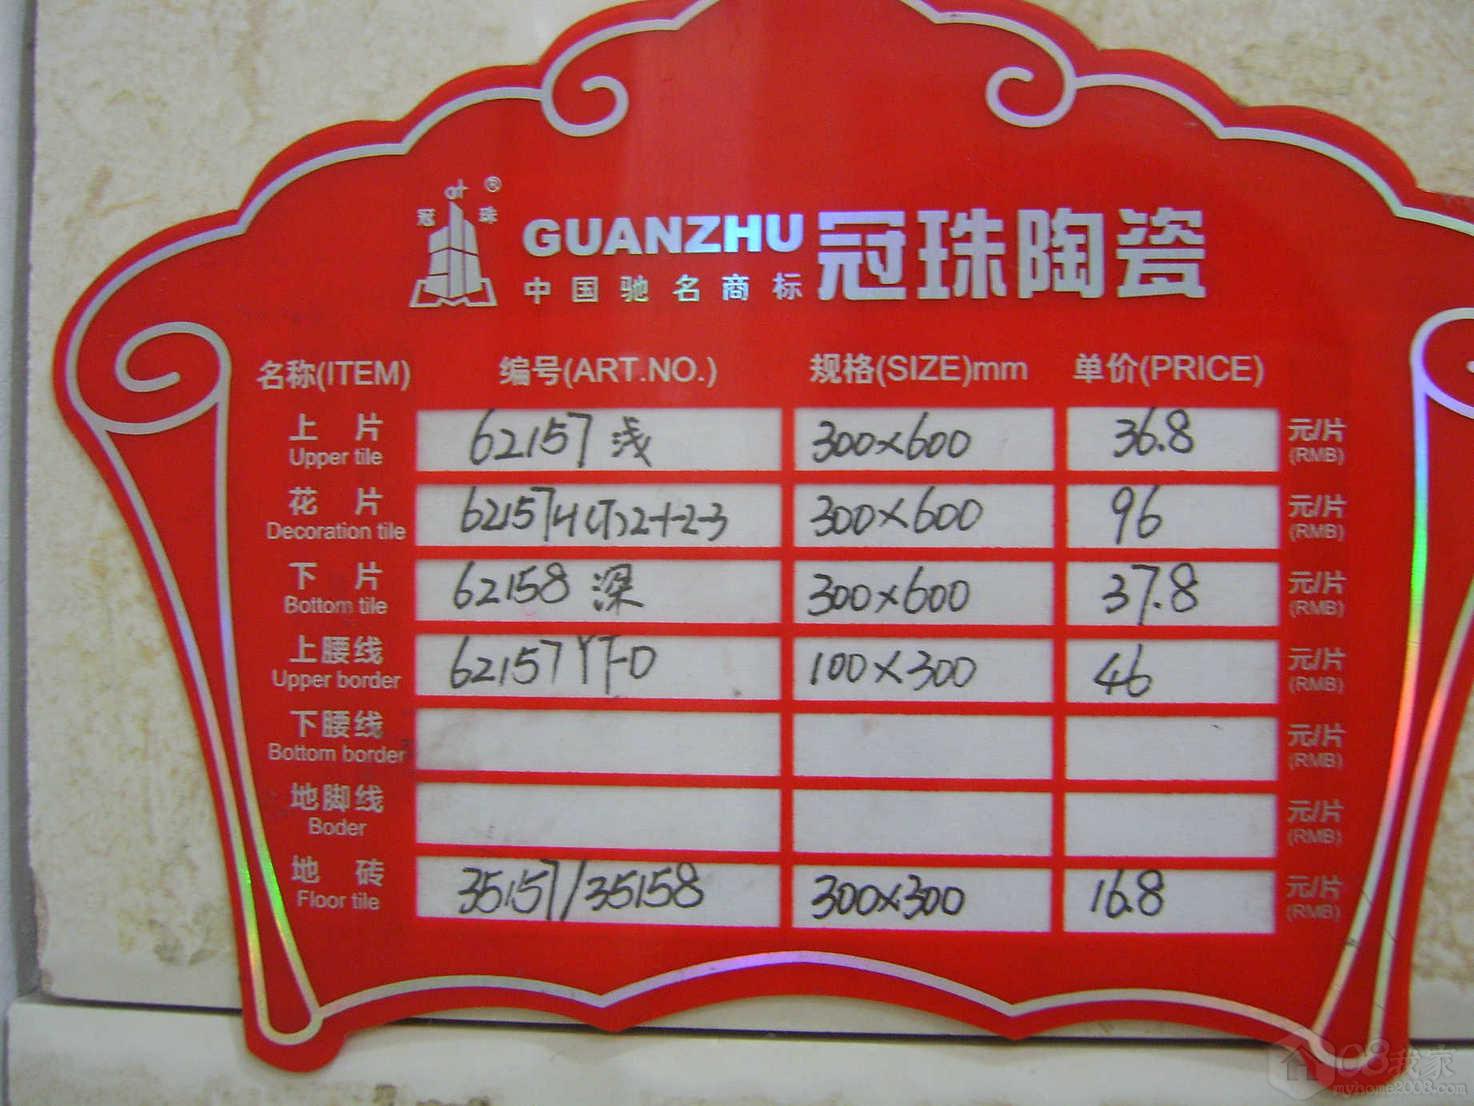 冠 珠 ®
GUANZHU 冠珠陶瓷
中国驰名商标
名称(ITEM) 编号(ART.NO.) 规格(SIZE)mm 单价(PRICE)
上 片 62157 浅 300×600 36.8 元/片
Upper tile (RMB)
花 片 300×600 96 元/片
Decoration tile (RMB)
下 片 62158 深 300×600 37.8 元/片
Bottom tile (RMB)
上腰线 62157 100×300 46 元/片
Upper border (RMB)
下腰线 元/片
Bottom border (RMB)
地脚线 元/片
Boder (RMB)
地 砖 35157/35158 300×300 16.8 元/片
Floor tile (RMB)
08我家
myhome2008.com